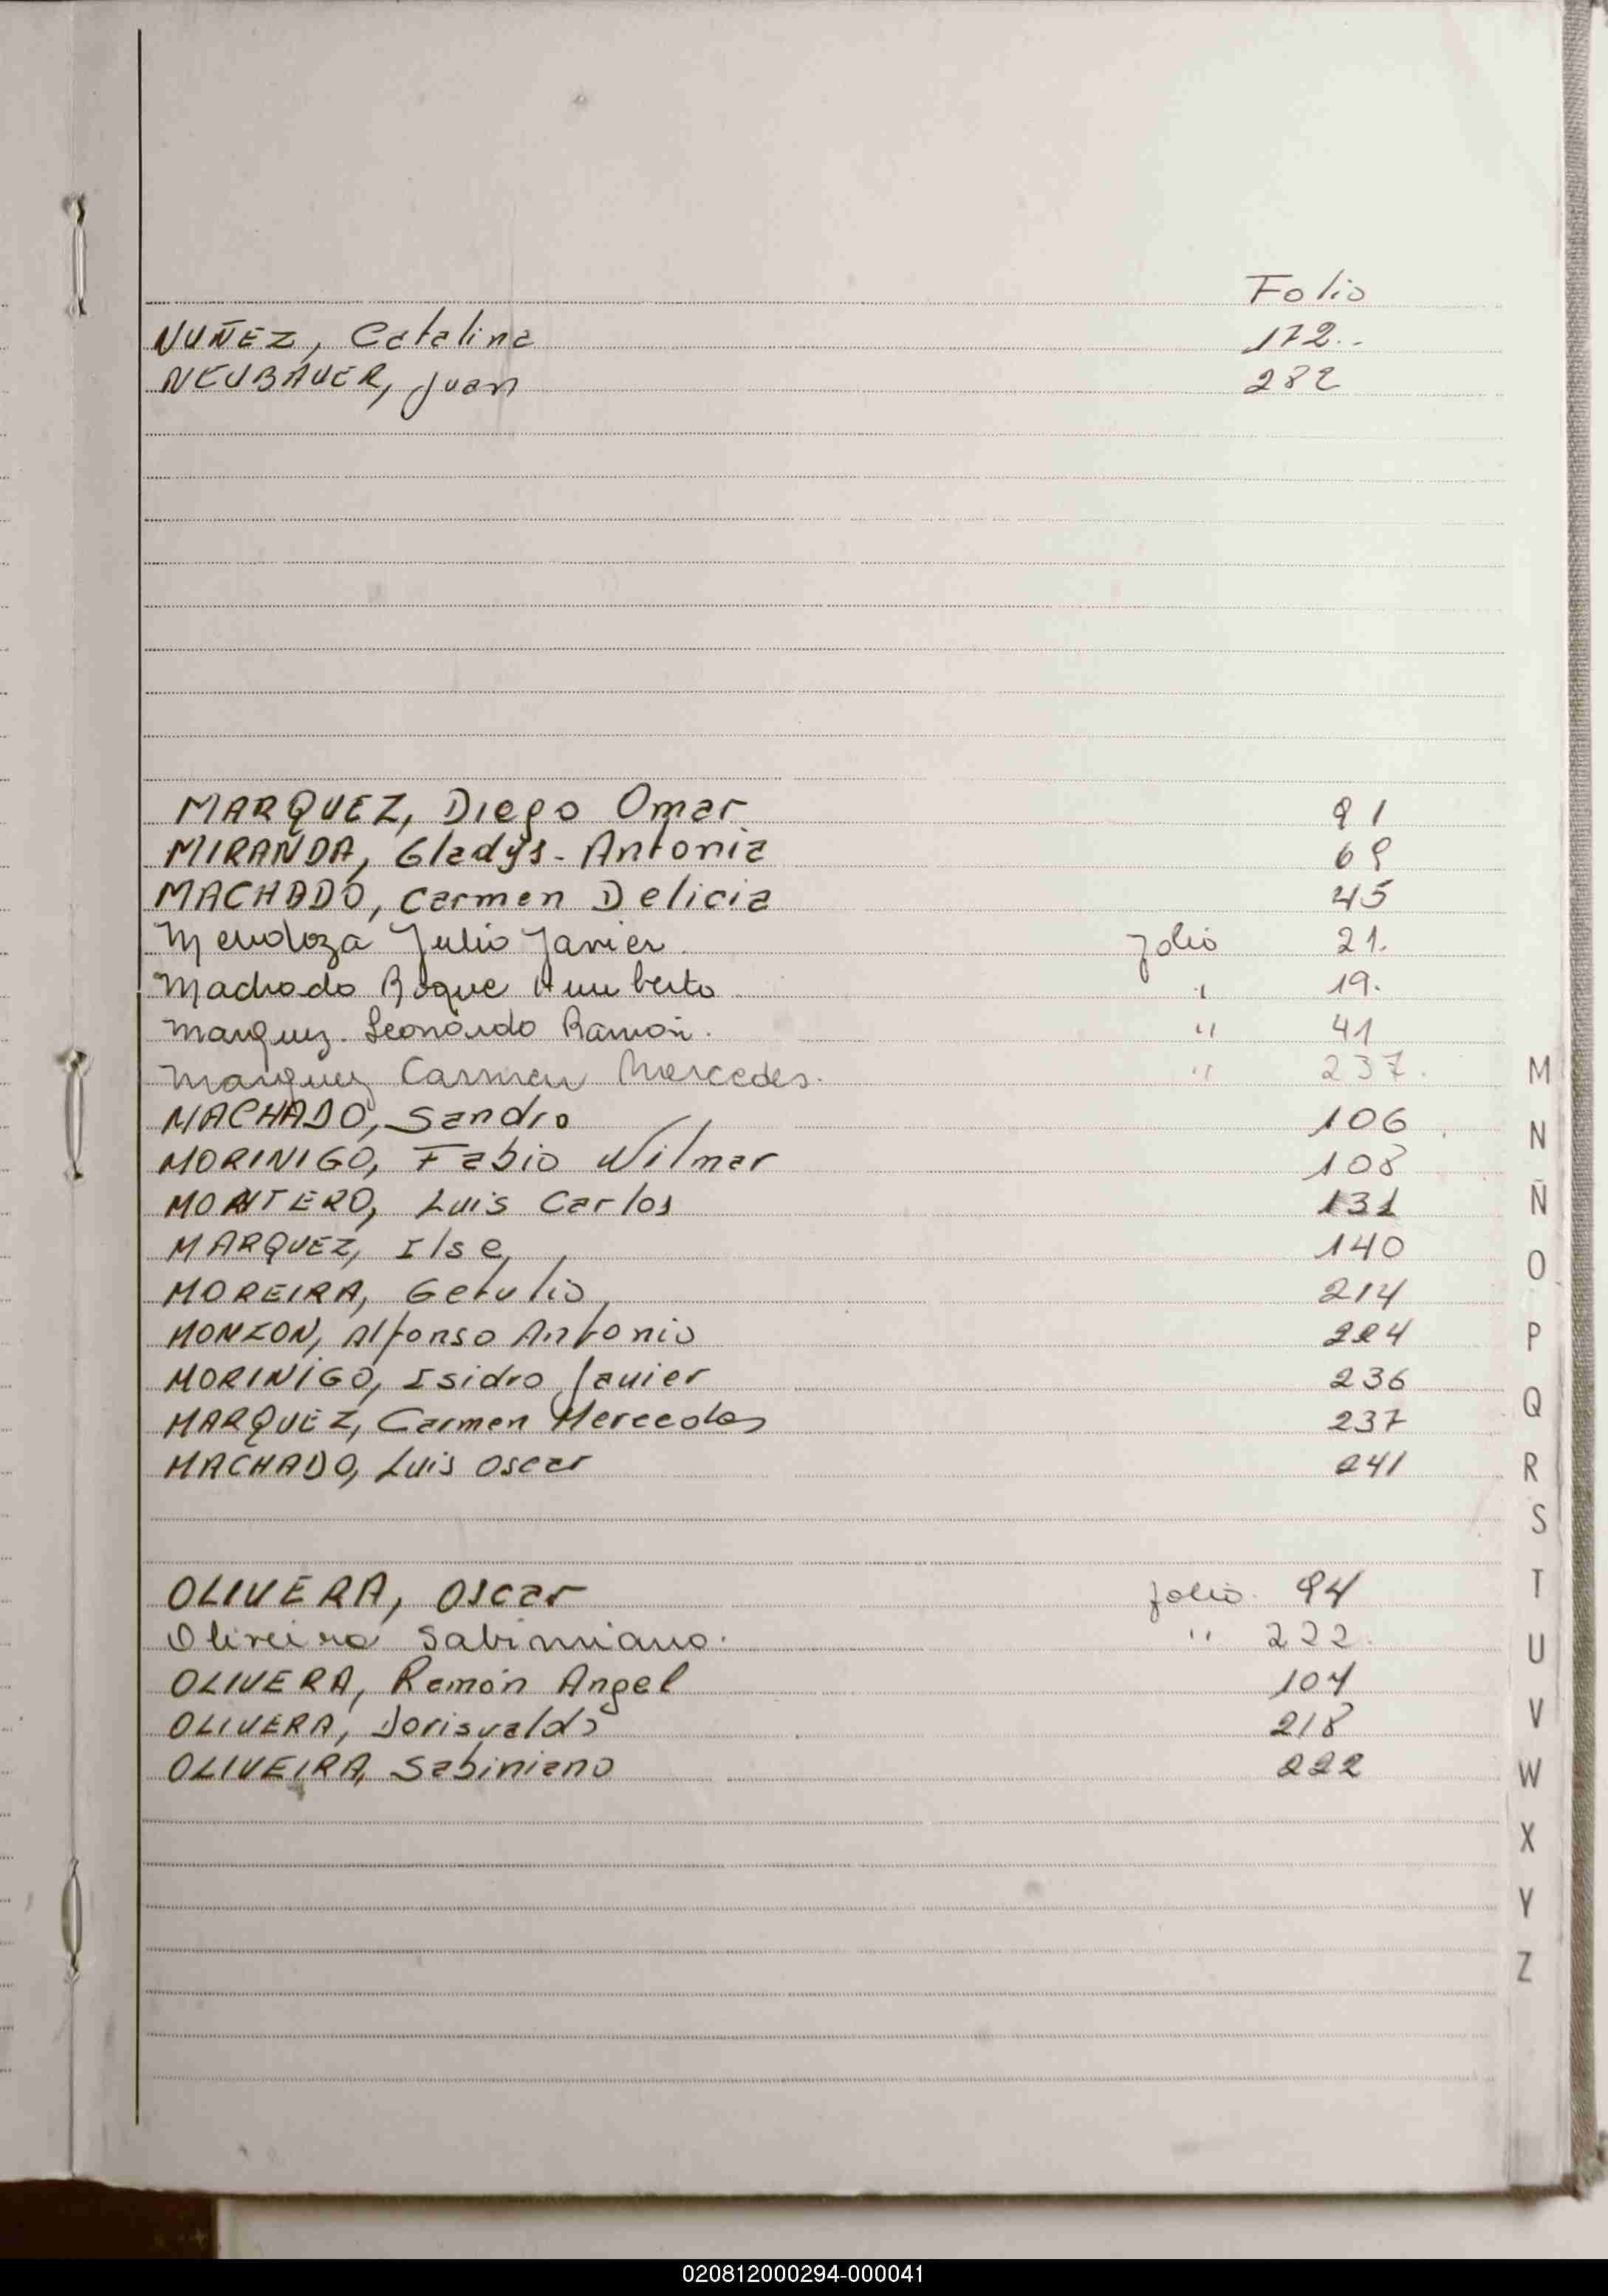 Folio
NUÑEZ, Catalina 172.-
NEUBAUER, Juan 282
MARQUEZ, Diego Omar 91
MIRANDA, Gladys - Antonia 69
MACHADO, Carmen Delicia 45
Mendoza Julio Javier. folio 21.
Machado Roque Humberto " 19.
Marquez. Leonardo Ramón. " 41
Marquez Carmen Mercedes. " 237.
MACHADO, Sandro 106
MORINIGO, Fabio Wilmar 108
MONTERO, Luis Carlos 131
MARQUEZ, Ilse 140
MOREIRA, Getulio 214
MONZON, Alfonso Antonio 224
MORINIGO, Isidro Javier 236
MARQUEZ, Carmen Mercedes 237
MACHADO, Luis Oscar 241
OLIVERA, Oscar folio. 94
Oliveira Sabinniano. " 222.
OLIVERA, Ramón Angel 104
OLIVERA, Dorisvaldo 218
OLIVEIRA, Sabiniano 222
M
N
Ñ
O
P
Q
R
S
T
U
V
W
X
Y
Z
020812000294-000041